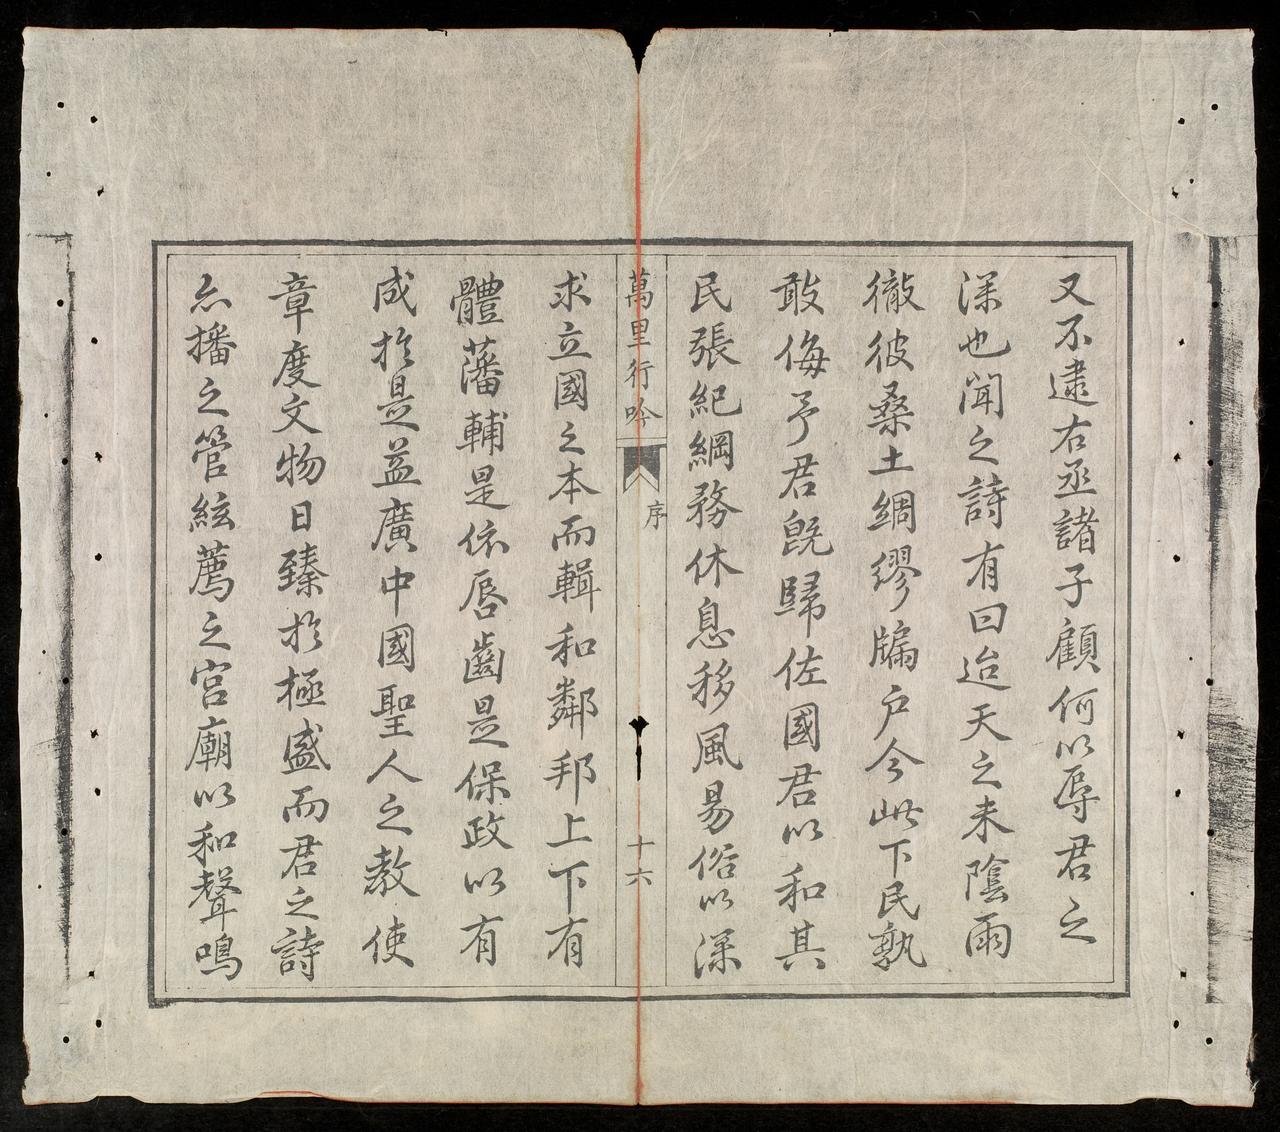 又不逮右丞諸子顧何以辱君之
深也聞之詩有曰迨天之未陰雨
徹彼桑土綢繆牖户今此下民孰
敢侮予君旣歸佐國君以和其
民張紀綱務休息移風易俗以深
萬里行吟
序
十六
求立國之本而輯和鄰邦上下有
體藩輔是依唇齒是保政以有
成扵是益廣中國聖人之教使
章度文物日臻扵極盛而君之詩
亦播之管絃薦之宮廟以和聲鳴